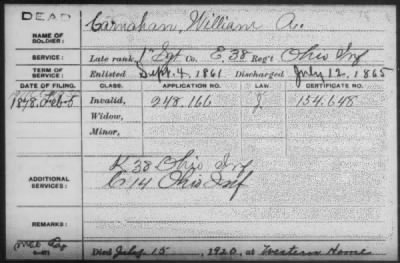 DEAD
NAME OF SOLDIER: Carnahan, William A.
SERVICE: Late rank, 1st Sgt Co. E, 38 Reg't Ohio Inf
TERM OF SERVICE: Enlisted Sept. 4, 1861 Discharged July 12, 1865
DATE OF FILING. CLASS. APPLICATION NO. LAW. CERTIFICATE NO.
1878, Feb 5 Invalid, 248.166 154.648
Widow,
Minor,
K 38 Ohio Inf
ADDITIONAL SERVICES: C 14 Ohio Inf
REMARKS:
Died July 15, 1920, at Western Home